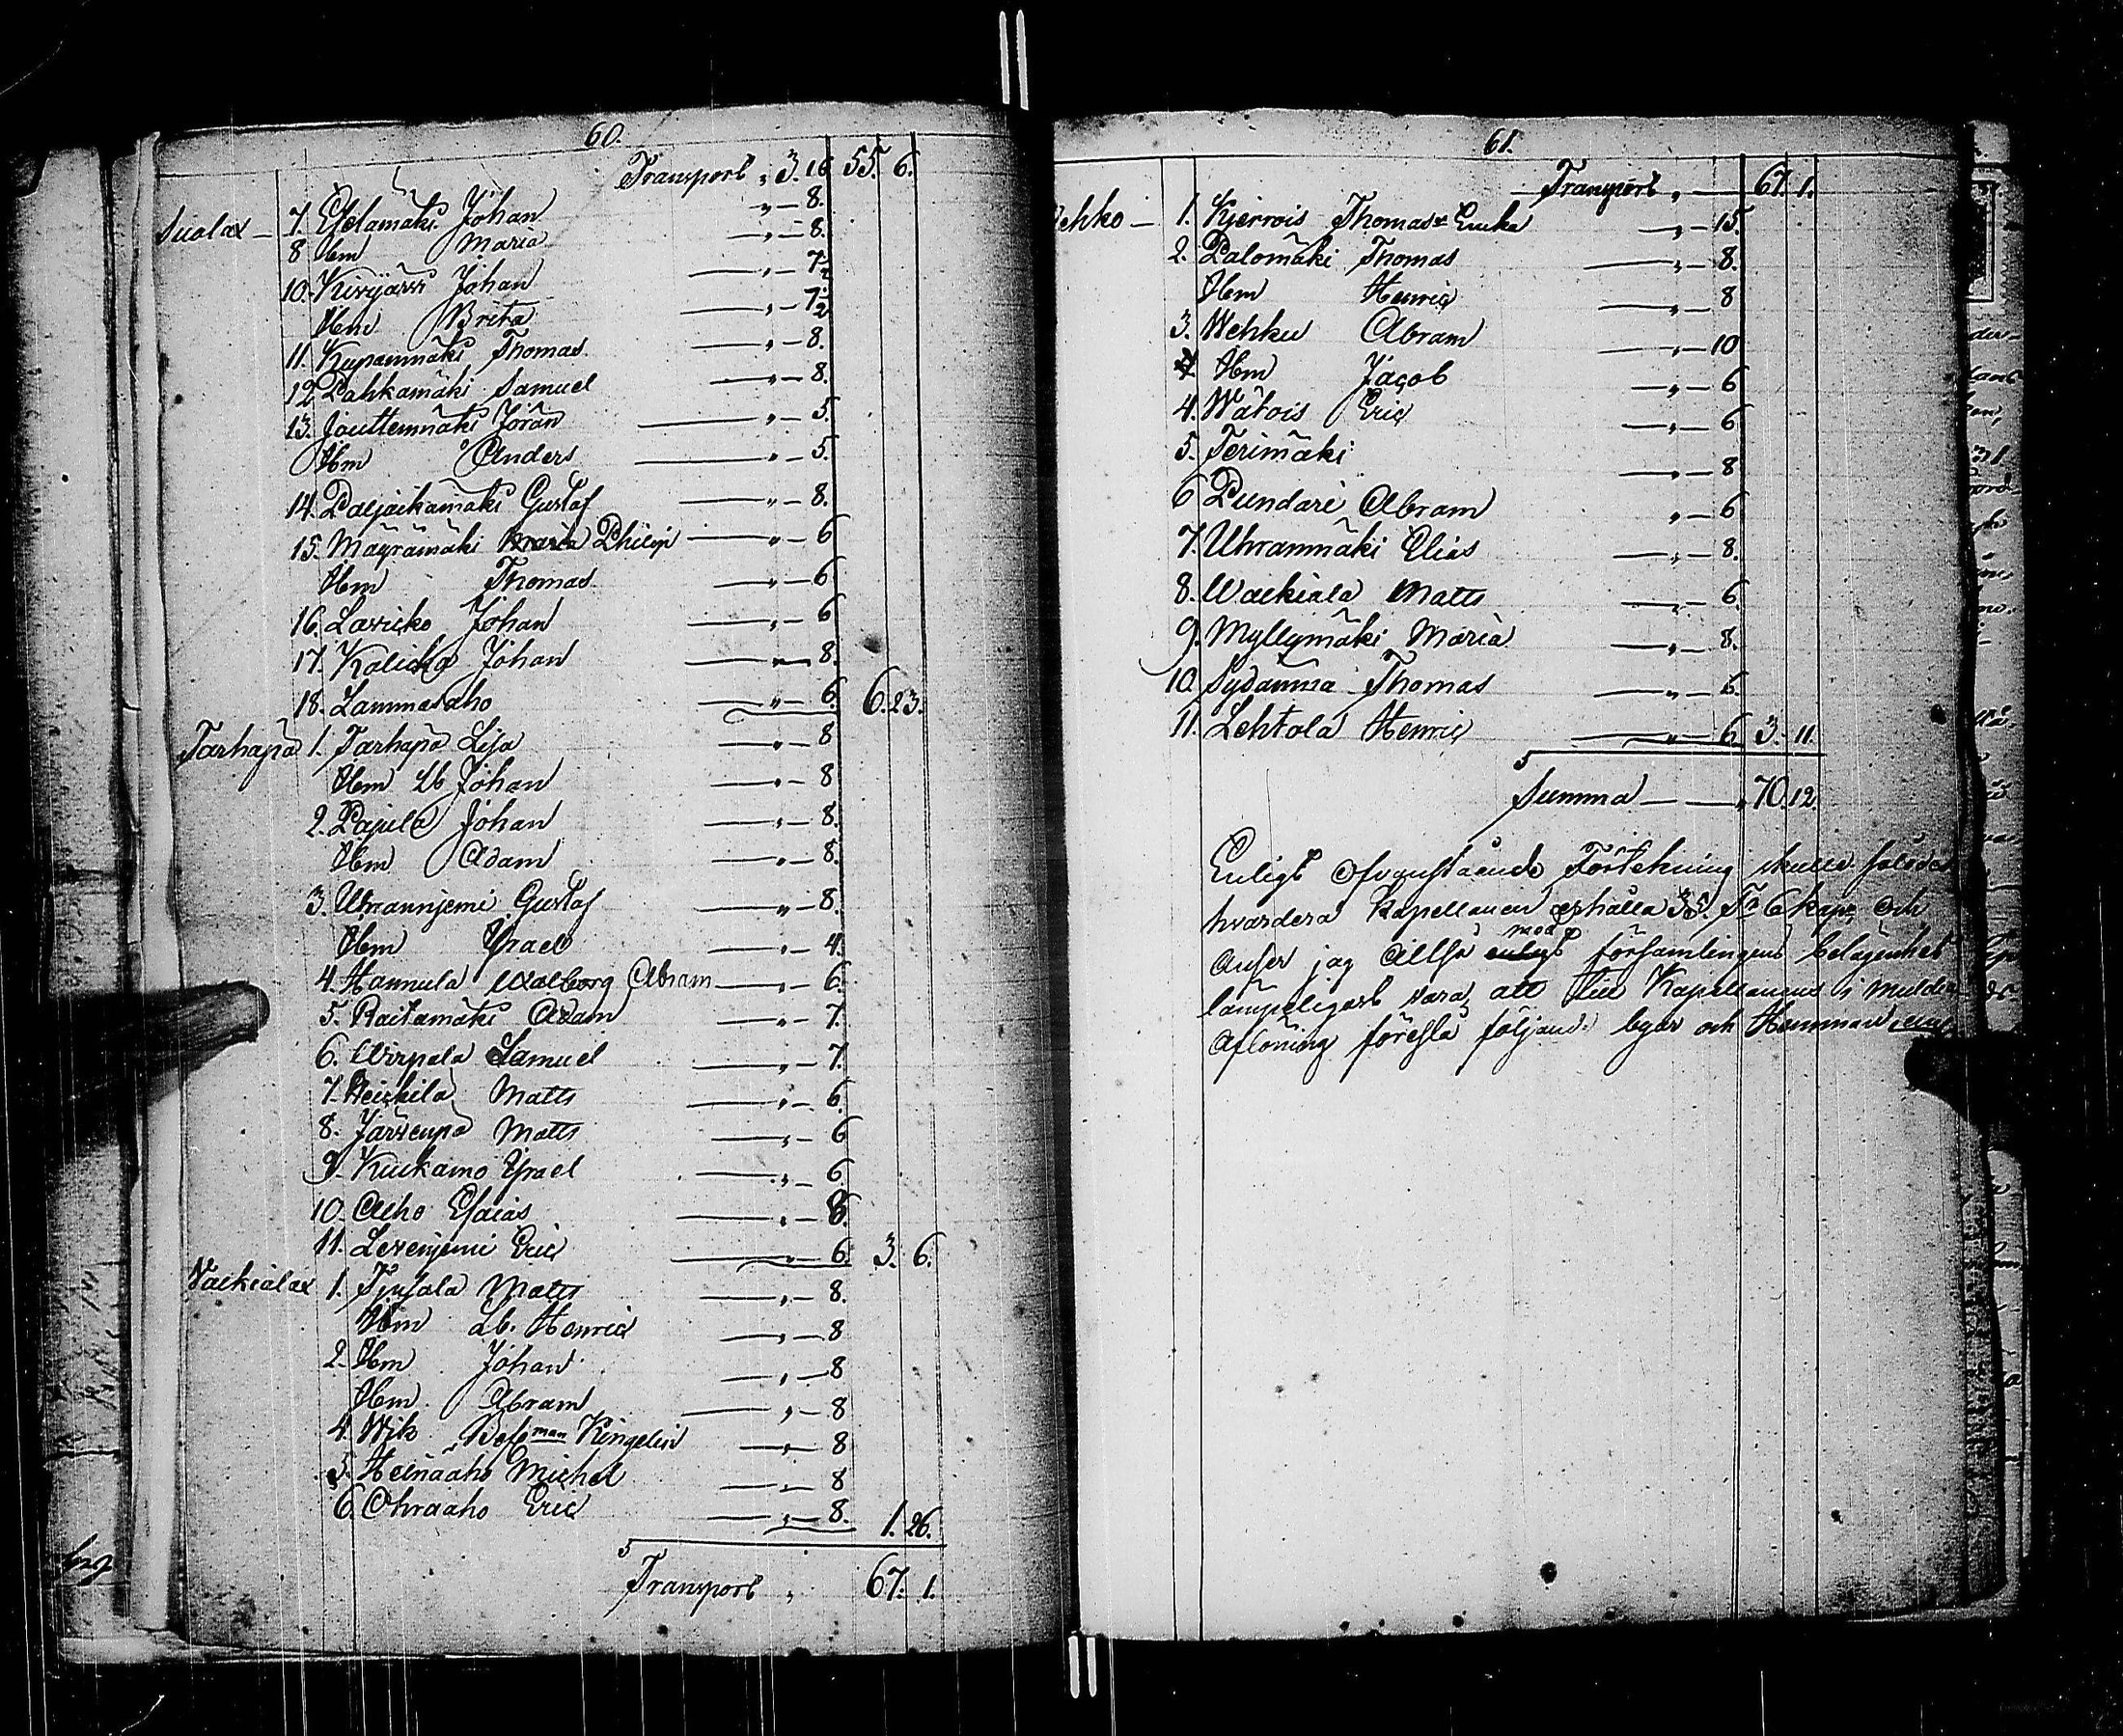 60.
Transport „ 3. 16 55. 6.
Sualax — 7. Ehdamäki Johan „ — 8.
8 Ibm Maria „ — 8.
10. Kivijärvi Johan „ — 7½
Ibm Brita „ — 7½
11. Kupammäki Thomas „ — 8.
12. Pahkamäki Samuel „ — 8.
13. Jouttemmäki Jöran „ — 5.
Ibm Anders „ — 5.
14. Paljaikamäki Gustaf „ — 8.
15. Mäyrämäki Maria Philip „ — 6
Ibm Thomas „ — 6
16. Lavicko Johan „ — 6
17. Kalicka Johan „ — 8.
18. Lammasaho „ — 6. 6. 23.
Tarhapä 1. Tarhapä Lisa „ — 8
Ibm Lb Johan „ — 8
2. Pajula Johan „ — 8.
Ibm Adam „ — 8.
3. Uhrannjemi Gustaf „ — 8.
Ibm Ysrael „ — 4.
4. Hannula Walborg Abram „ — 6.
5. Raitamäki Adam „ — 7.
6. Wirpala Samuel „ — 7.
7. Heickilä Matts „ — 6.
8. Järvenpä Matts „ — 6
9. Kiukamo Ysrael „ — 6.
10. Aho Esaias „ — 6.
11. Levenjemi Eric „ — 6. 3. 6.
Vaikialax 1. Matts „ — 8.
Ibm Lb. Henric „ — 8
2. Ibm Johan „ — 8
Ibm Abram „ — 8
4. Wik Bofsman Kingelin „ — 8
5. Heinäaho Michel „ — 8
6. Ohraaho Eric „ — 8. 1. 26.
Transport „ 67. 1.
61.
Transport „ — 67. 1.
ehko — 1. Kjervois Thomas Enka „ — 15.
2. Palomäki Thomas „ — 8.
Ibm Henric „ — 8
3. Wehku Abram „ — 10
Ibm Jacob „ — 6
4. Wätois Eric „ — 6
5. Terimäki „ — 8
6 Pundari Abram „ — 6
7. Uhrammäki Elias „ — 8.
8. Waikiala Matts „ — 6.
9. Myllymäki Maria „ — 8.
10. Sydänmä Thomas „ — 6.
11. Lehtola Henric „ — 6. 3. 11.
Summa — „ 70. 12
Enligt ofvanstående Förtekning skulle således
hvardera Kapellanen erhålla 35. Tr 6 kapr och
anser jag altså enligt med församlingens belägenhet
lämpeligast vara, att till Kapellanens i Muldia
aflöning föreslå följande byar och Hemman,